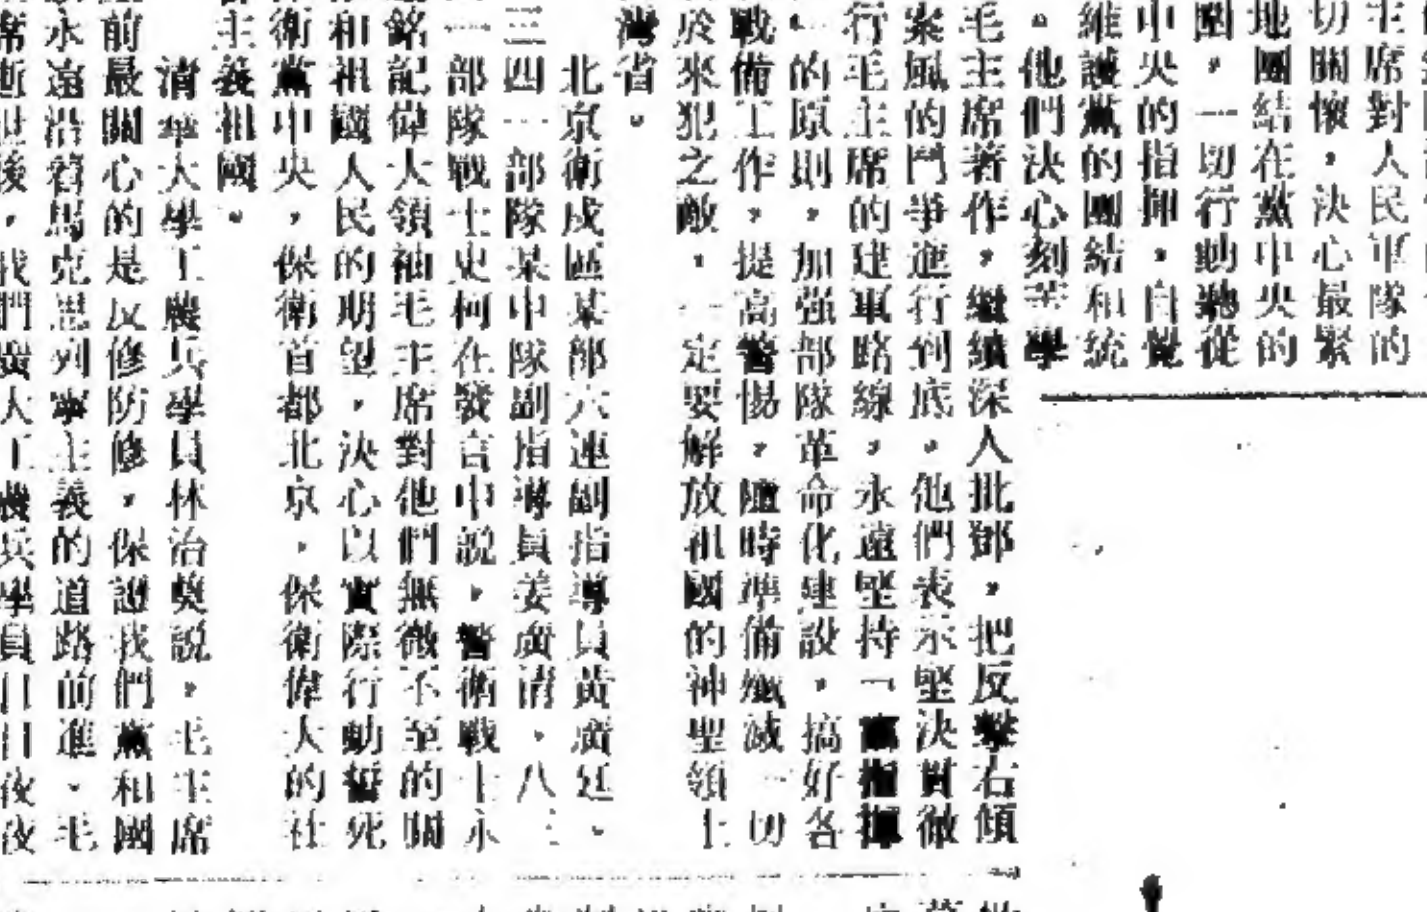 主席對人民軍隊的
切關懷，決心最緊
地團結在黨中央的
圍，一切行動聽從
中央的指揮，自覺
維護黨的團結和統
。他們決心刻苦學
毛主席著作，繼續深入批鄧，把反擊右傾
案風的鬥爭進行到底。他們表示堅決貫徹
行毛主席的建軍路線，永遠堅持「黨指揮
」的原則，加強部隊革命化建設，搞好各
戰備工作，提高警惕，隨時準備殲滅一切
於來犯之敵，一定要解放祖國的神聖領土
灣省。
北京衛戍區某部六連副指導員黃廣廷、
三四一部隊某中隊副指導員姜廣清、八三
一部隊戰士史柯在發言中說，警衛戰士永
銘記偉大領袖毛主席對他們無微不至的關
和祖國人民的期望，決心以實際行動誓死
衛黨中央，保衛首都北京，保衛偉大的社
主義祖國。
清華大學工農兵學員林治奬説，毛主席
前最關心的是反修防修，保證我們黨和國
永遠沿着馬克思列寧主義的道路前進。毛
席逝世後，我們廣大工農兵學員日日夜夜